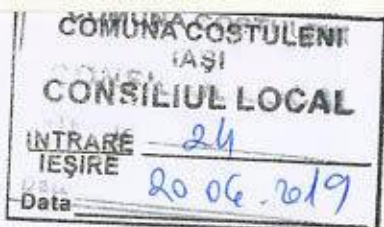 COMUNA COSTULENI
IAŞI
CONSILIUL LOCAL
INTRARE 24
IEŞIRE
Data 20 06. 2019